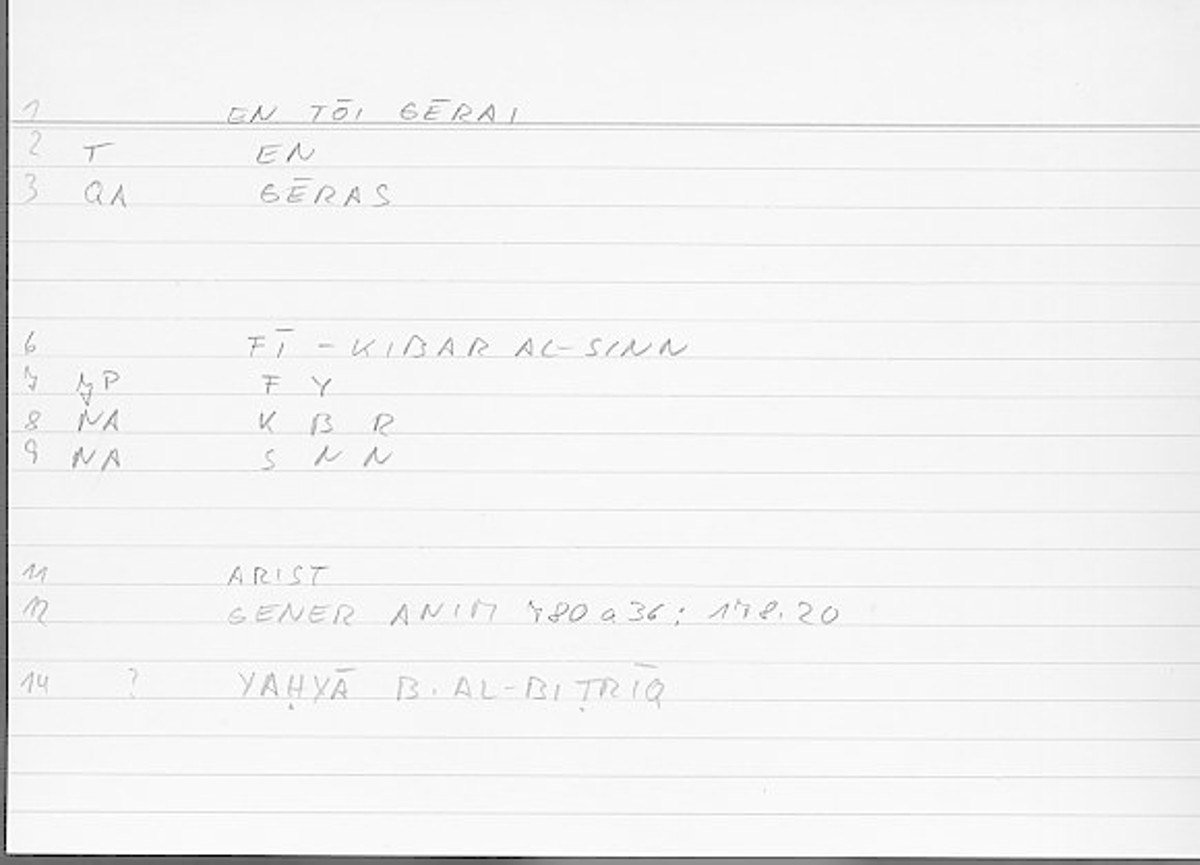 1 EN TŌI GĒRAI
2 T EN
3 QA GĒRAS
6 FĪ - KIBAR AL-SINN
7 ȜP F Y
8 NA K B R
9 NA S N N
11 ARIST
12 GENER ANIM 780a36; 178.20
14 ? YAḤYĀ B. AL-BIṬRĪQ